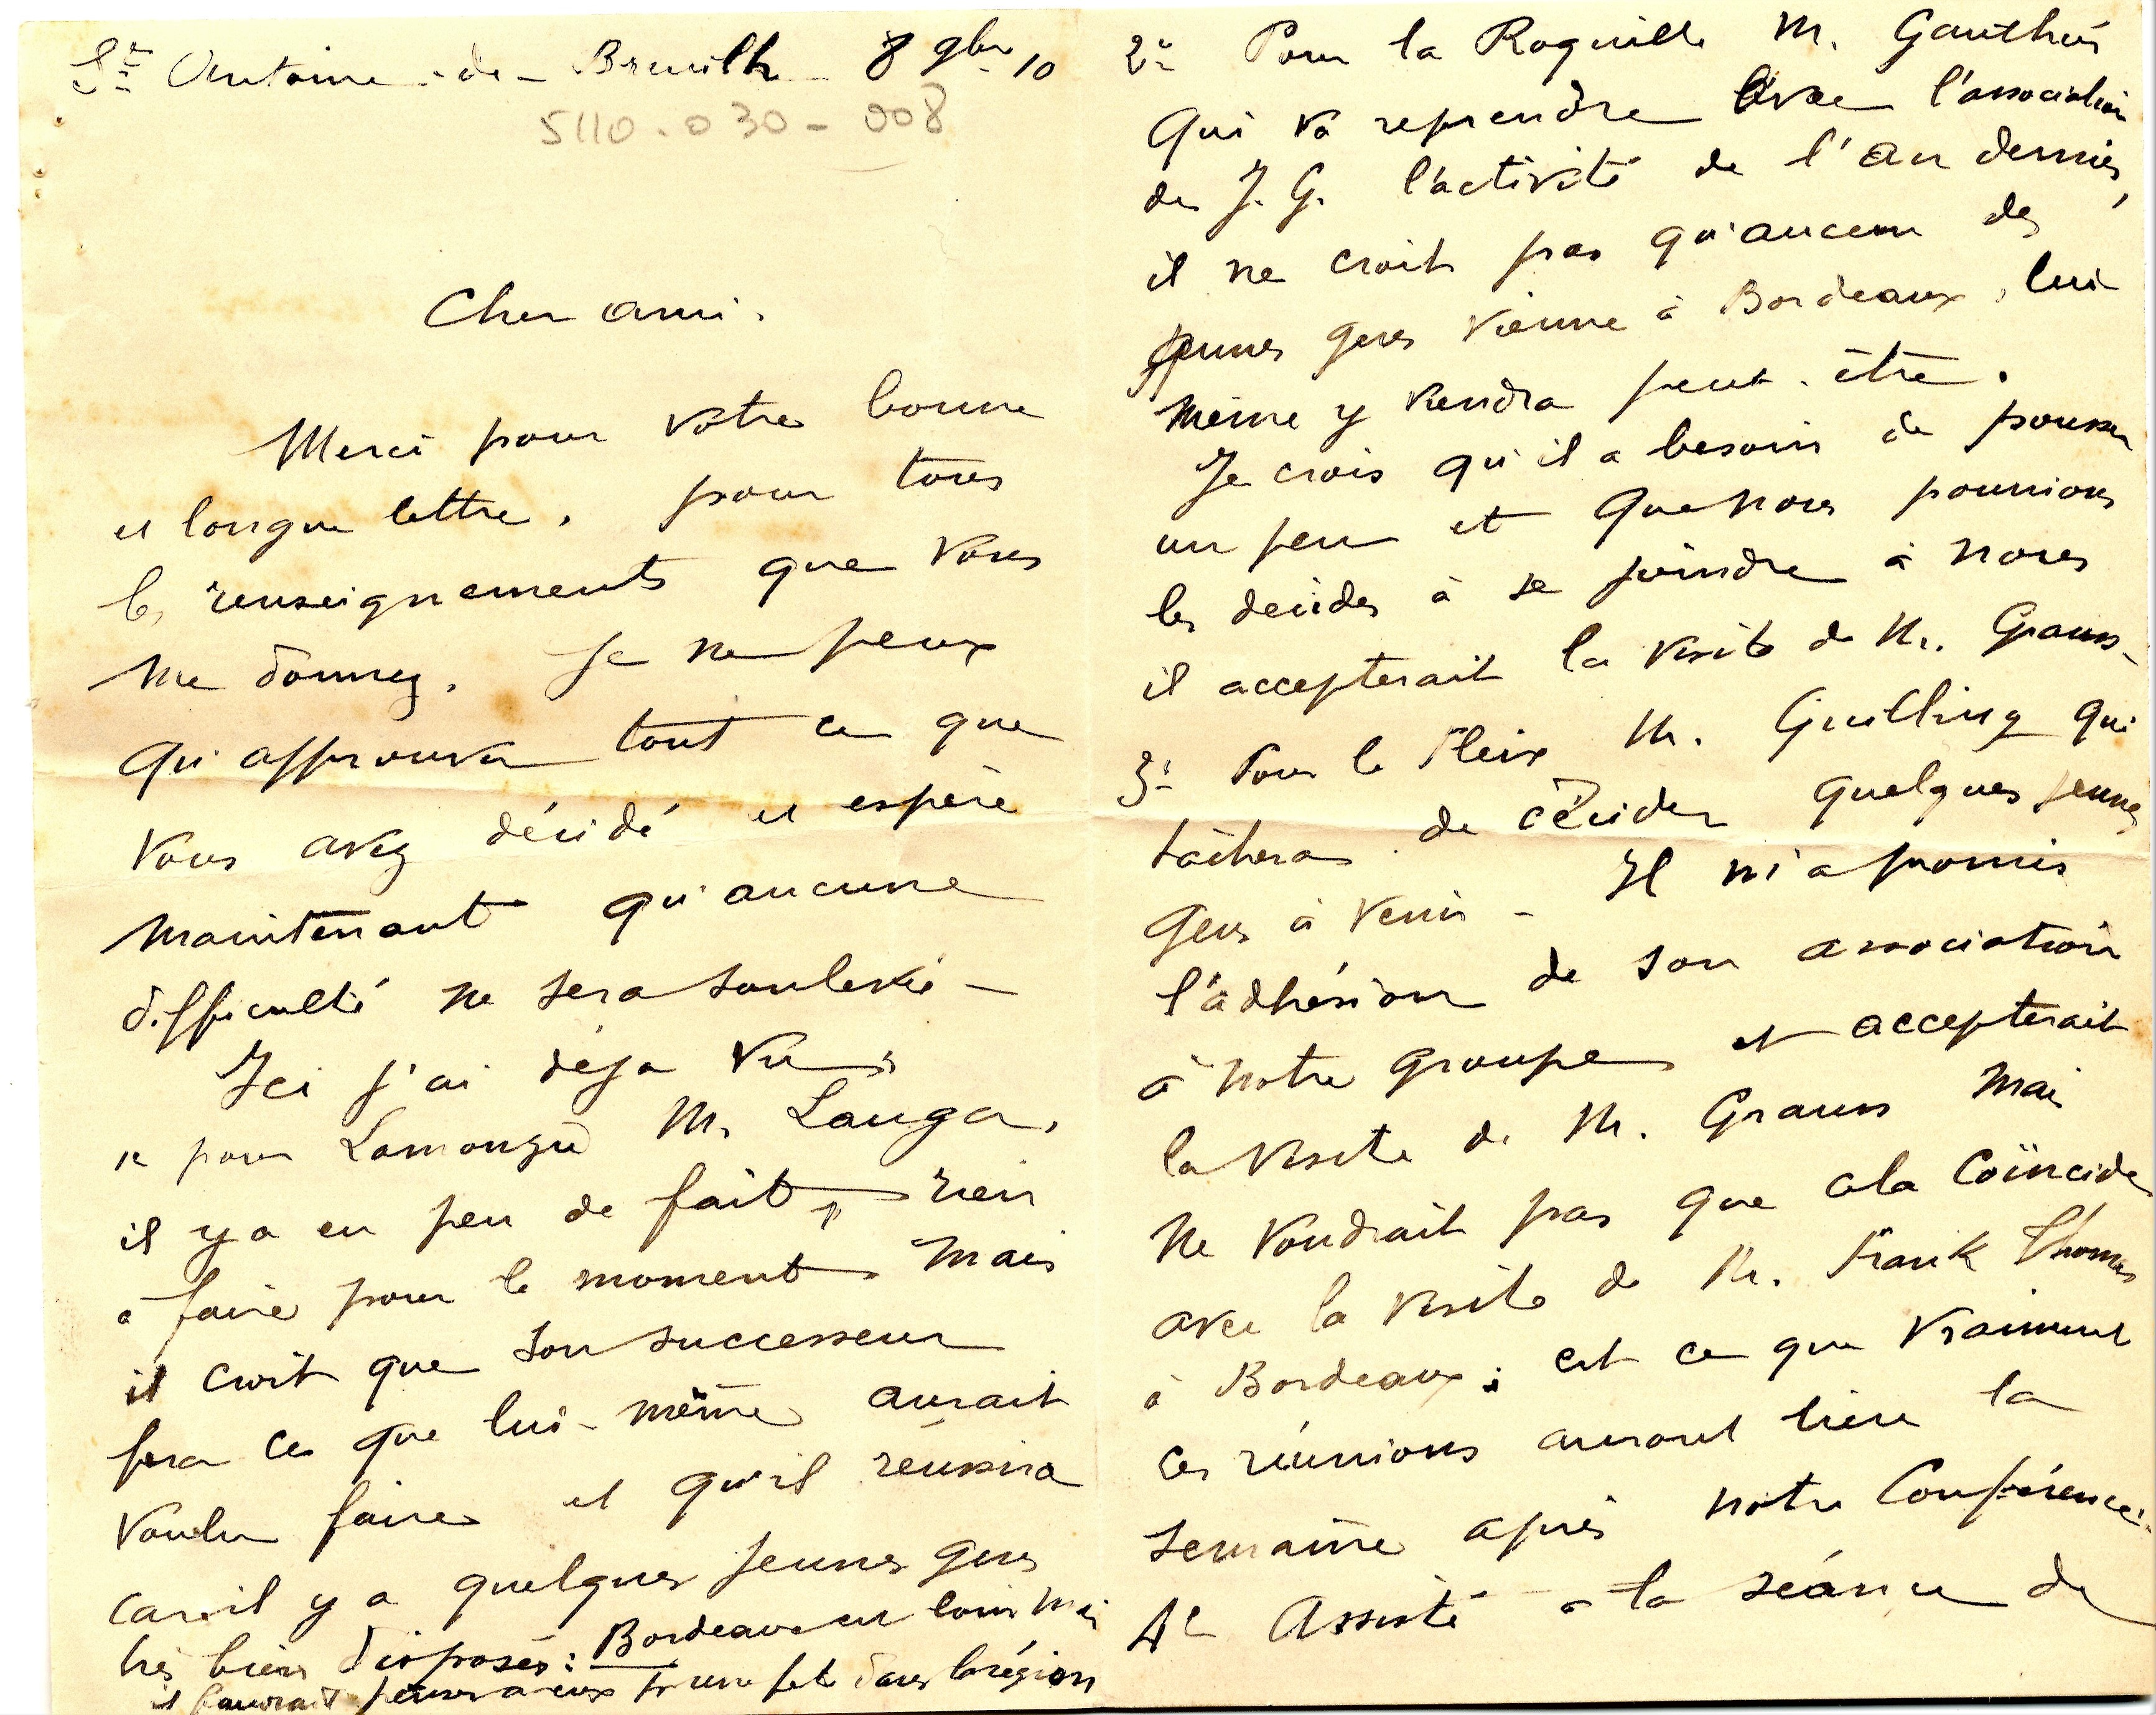 St Antoine-de-Breuilh 8 9bre 10
5110.030-008
Cher ami.
Merci pour votre bonne
et longue lettre, pour tous
les renseignements que vous
me donnez. Je ne peux
qu'approuver tout ce que
vous avez décidé et espère
maintenant qu'aucune
difficulté ne sera soulevée -
Ici j'ai déjà vu :
1e pour Lamonzie M. Lauga.
il y a eu peu de fait, rien
à faire pour le moment mais
il croit que son successeur
fera ce que lui-même aurait
voulu faire et qu'il réussira
car il y a quelques jeunes gens
très bien disposés : Bordeaux est loin mais
il faudrait penser à eux pr une fête dans la région
2e Pour la Roquille M. Gauthier
qui va reprendre avec l'association
de J. G. l'activité de l'an dernier,
il ne croit pas qu'aucun des
jeunes gens vienne à Bordeaux, lui
même y viendra peut-être.
Je crois qu'il a besoin de pousser
un peu et que nous pourrions
les décider à se joindre à nous
il accepterait la visite de M. Grauss -
3e Pour le Fleix M. Guilling qui
tâchera de décider quelques jeunes
gens à venir - Il m'a promis
l'adhésion de son association
à notre groupe et accepterait
la visite de M. Grauss mais
ne voudrait pas que cela coïncide
avec la visite de M. Frank Thomas
à Bordeaux ; est ce que vraiment
ces réunions auront lieu la
semaine après notre Conférence.
4e Assisté à la séance de